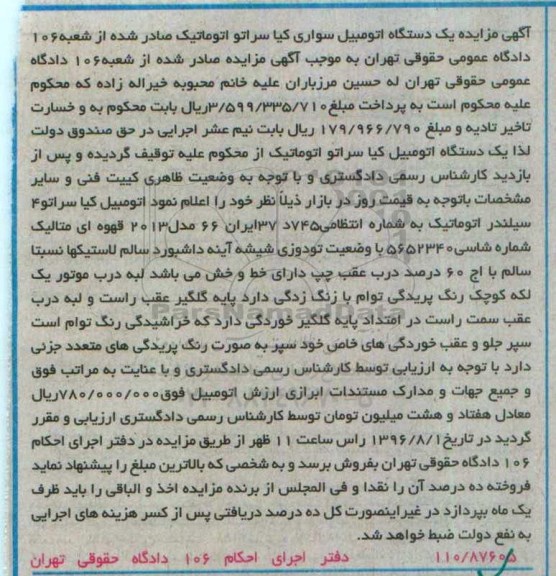 آگهی مزایده یک دستگاه اتومبیل سواری کیا سراتو اتوماتیک صادر شده از شعبه۱۰۶
دادگاه عمومی حقوقی تهران به موجب آگهی مزایده صادر شده از شعبه۱۰۶ دادگاه
عمومی حقوقی تهران له حسین مرزباران علیه خانم محبوبه خیراله زاده که محکوم
علیه محکوم است به پرداخت مبلغ۳/۵۹۹/۳۳۵/۷۱۰ریال بابت محکوم به و خسارت
تاخیر تادیه و مبلغ ۱۷۹/۹۶۶/۷۹۰ ریال بابت نیم عشر اجرایی در حق صندوق دولت
لذا یک دستگاه اتومبیل کیا سراتو اتوماتیک از محکوم علیه توقیف گردیده و پس از
بازدید کارشناس رسمی دادگستری و با توجه به وضعیت ظاهری کییت فنی و سایر
مشخصات باتوجه به قیمت روز در بازار ذیلاً نظر خود را اعلام نمود اتومبیل کیا سراتو۴
سیلندر اتوماتیک به شماره انتظامی۷۴۵د ۳۷ایران ۶۶ مدل۲۰۱۳ قهوه ای متالیک
شماره شاسی۵۶۵۲۳۴۰ با وضعیت تودوزی شیشه آینه داشبورد سالم لاستیکها نسبتا
سالم با اج ۶۰ درصد درب عقب چپ دارای خط و خش می باشد لبه درب موتور یک
لکه کوچک رنگ پریدگی توام با زنگ زدگی دارد پایه گلگیر عقب راست و لبه درب
عقب سمت راست در امتداد پایه گلگیر خوردگی دارد که خراشیدگی رنگ توام است
سپر جلو و عقب خوردگی های خاص خود سپر به صورت رنگ پریدگی های متعدد جزئی
دارد با توجه به ارزیابی توسط کارشناس رسمی دادگستری و با عنایت به مراتب فوق
و جمیع جهات و مدارک مستندات ابرازی ارزش اتومبیل فوق۷۸۰/۰۰۰/۰۰۰ریال
معادل هفتاد و هشت میلیون تومان توسط کارشناس رسمی دادگستری ارزیابی و مقرر
گردید در تاریخ۱۳۹۶/۸/۱ راس ساعت ۱۱ ظهر از طریق مزایده در دفتر اجرای احکام
۱۰۶ دادگاه حقوقی تهران بفروش برسد و به شخصی که بالاترین مبلغ را پیشنهاد نماید
فروخته ده درصد آن را نقدا و فی المجلس از برنده مزایده اخذ و الباقی را باید ظرف
یک ماه بپردازد در غیراینصورت کل ده درصد دریافتی پس از کسر هزینه های اجرایی
به نفع دولت ضبط خواهد شد.
۱۱۰/۸۷۶۰۵ دفتر اجرای احکام ۱۰۶ دادگاه حقوقی تهران
ParsNamadData